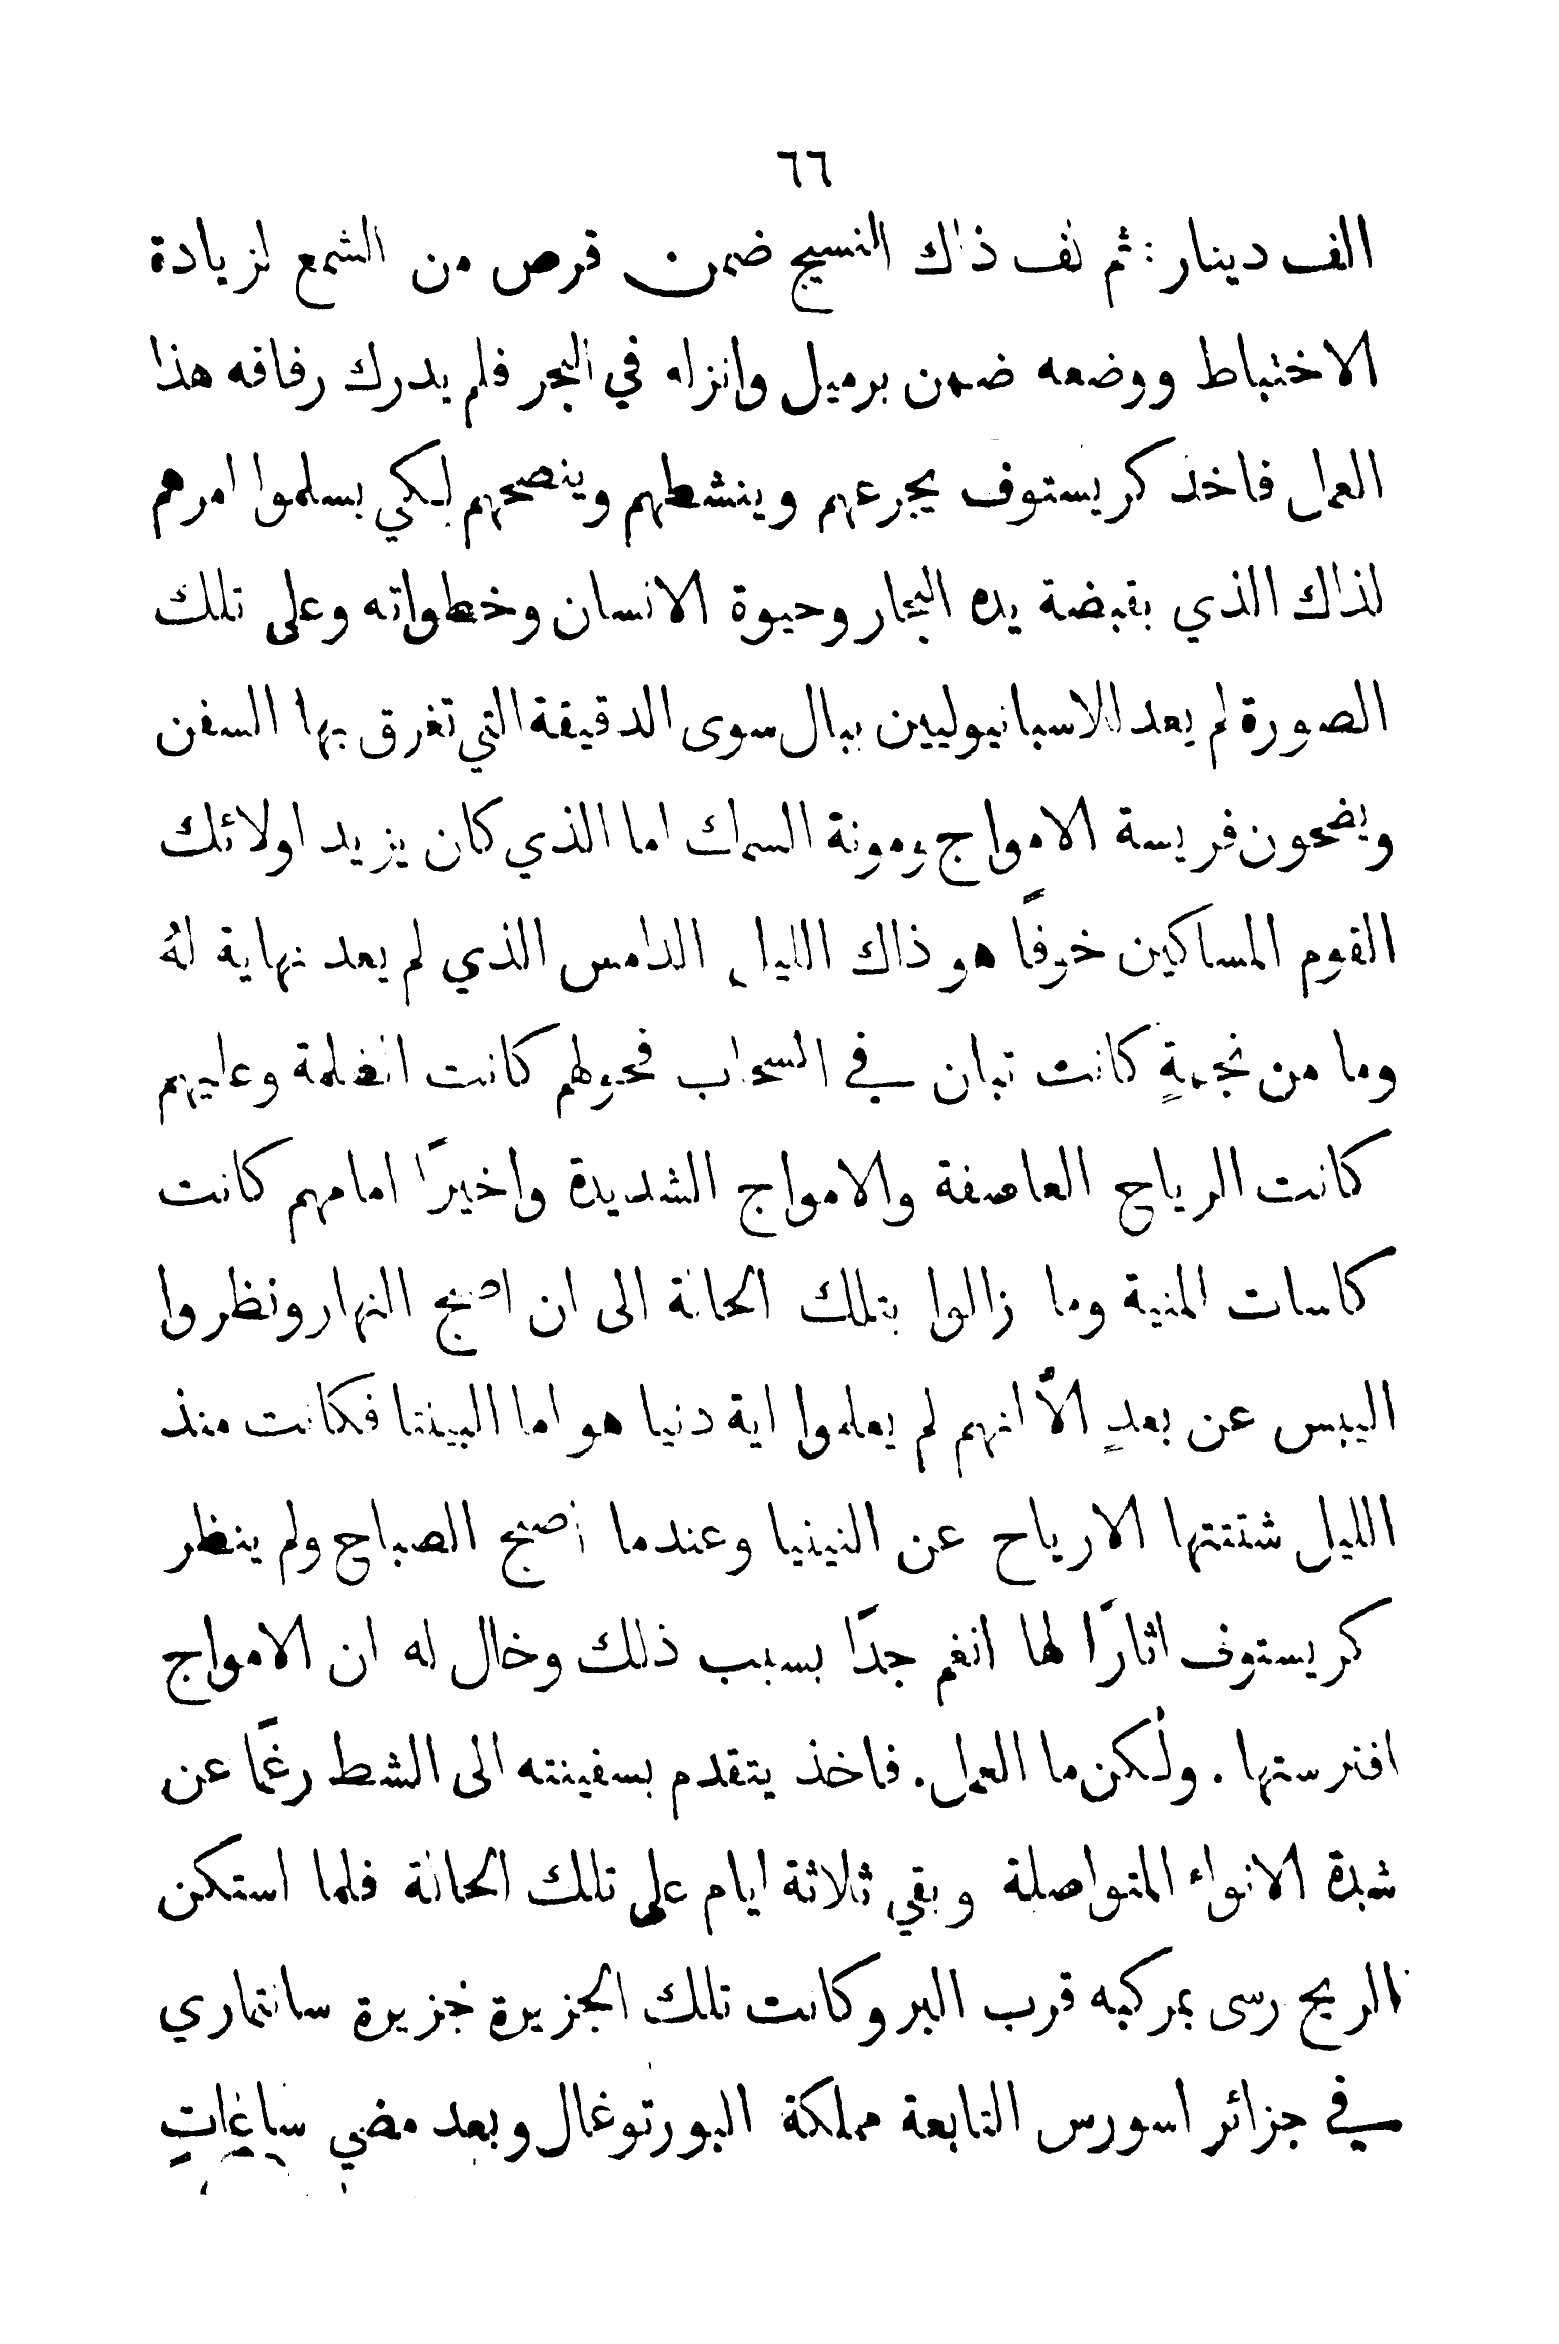 ٦٦
الف دينار: ثم لف ذاك النسيج ضمن قرص من الشمع لزيادة
الاختباط ووضعه ضمن برميل وانزله في البحر فلم يدرك رفاقه هذا
العمل فاخذ كريستوف يجرعهم وينشطهم وينصحهم لكي يسلموا امرهم
لذاك الذي بقبضة يده البحار وحيوة الانسان وخطواته وعلى تلك
الصورة لم يعد للاسبانيوليين ببال سوى الدقيقة التي تغرق بها السفن
ويضحون فريسة الامواج ومونة السمك اما الذي كان يزيد اولائك
القوم المساكين خوفًا هو ذاك الليل الدامس الذي لم يعد نهاية لهُ
وما من نجمةٍ كانت تبان في السحاب فحولهم كانت الظلمة وعليهم
كانت الرياح العاصفة والامواج الشديدة واخيرًا امامهم كانت
كاسات المنية وما زالوا بتلك الحالة الى ان اصبح النهار ونظروا
اليبس عن بعدٍ الاَّ انهم لم يعلموا اية دنيا هو اما البينتا فكانت منذ
الليل شتتتها الارياح عن النينيا وعندما اصبح الصباح ولم ينظر
كريستوف اثارًا لها انغم جدًا بسبب ذلك وخال له ان الامواج
افترستها . ولٰكن ما العمل. فاخذ يتقدم بسفينته الى الشط رغمًا عن
شدة الانواء المتواصلة وبقي ثلاثة ايام على تلك الحالة فلما استكن
الريح رسى بمركبه قرب البر وكانت تلك الجزيرة جزيرة سانتماري
في جزائر اسورس التابعة مملكة البورتوغال وبعد مضي ساعاتٍ